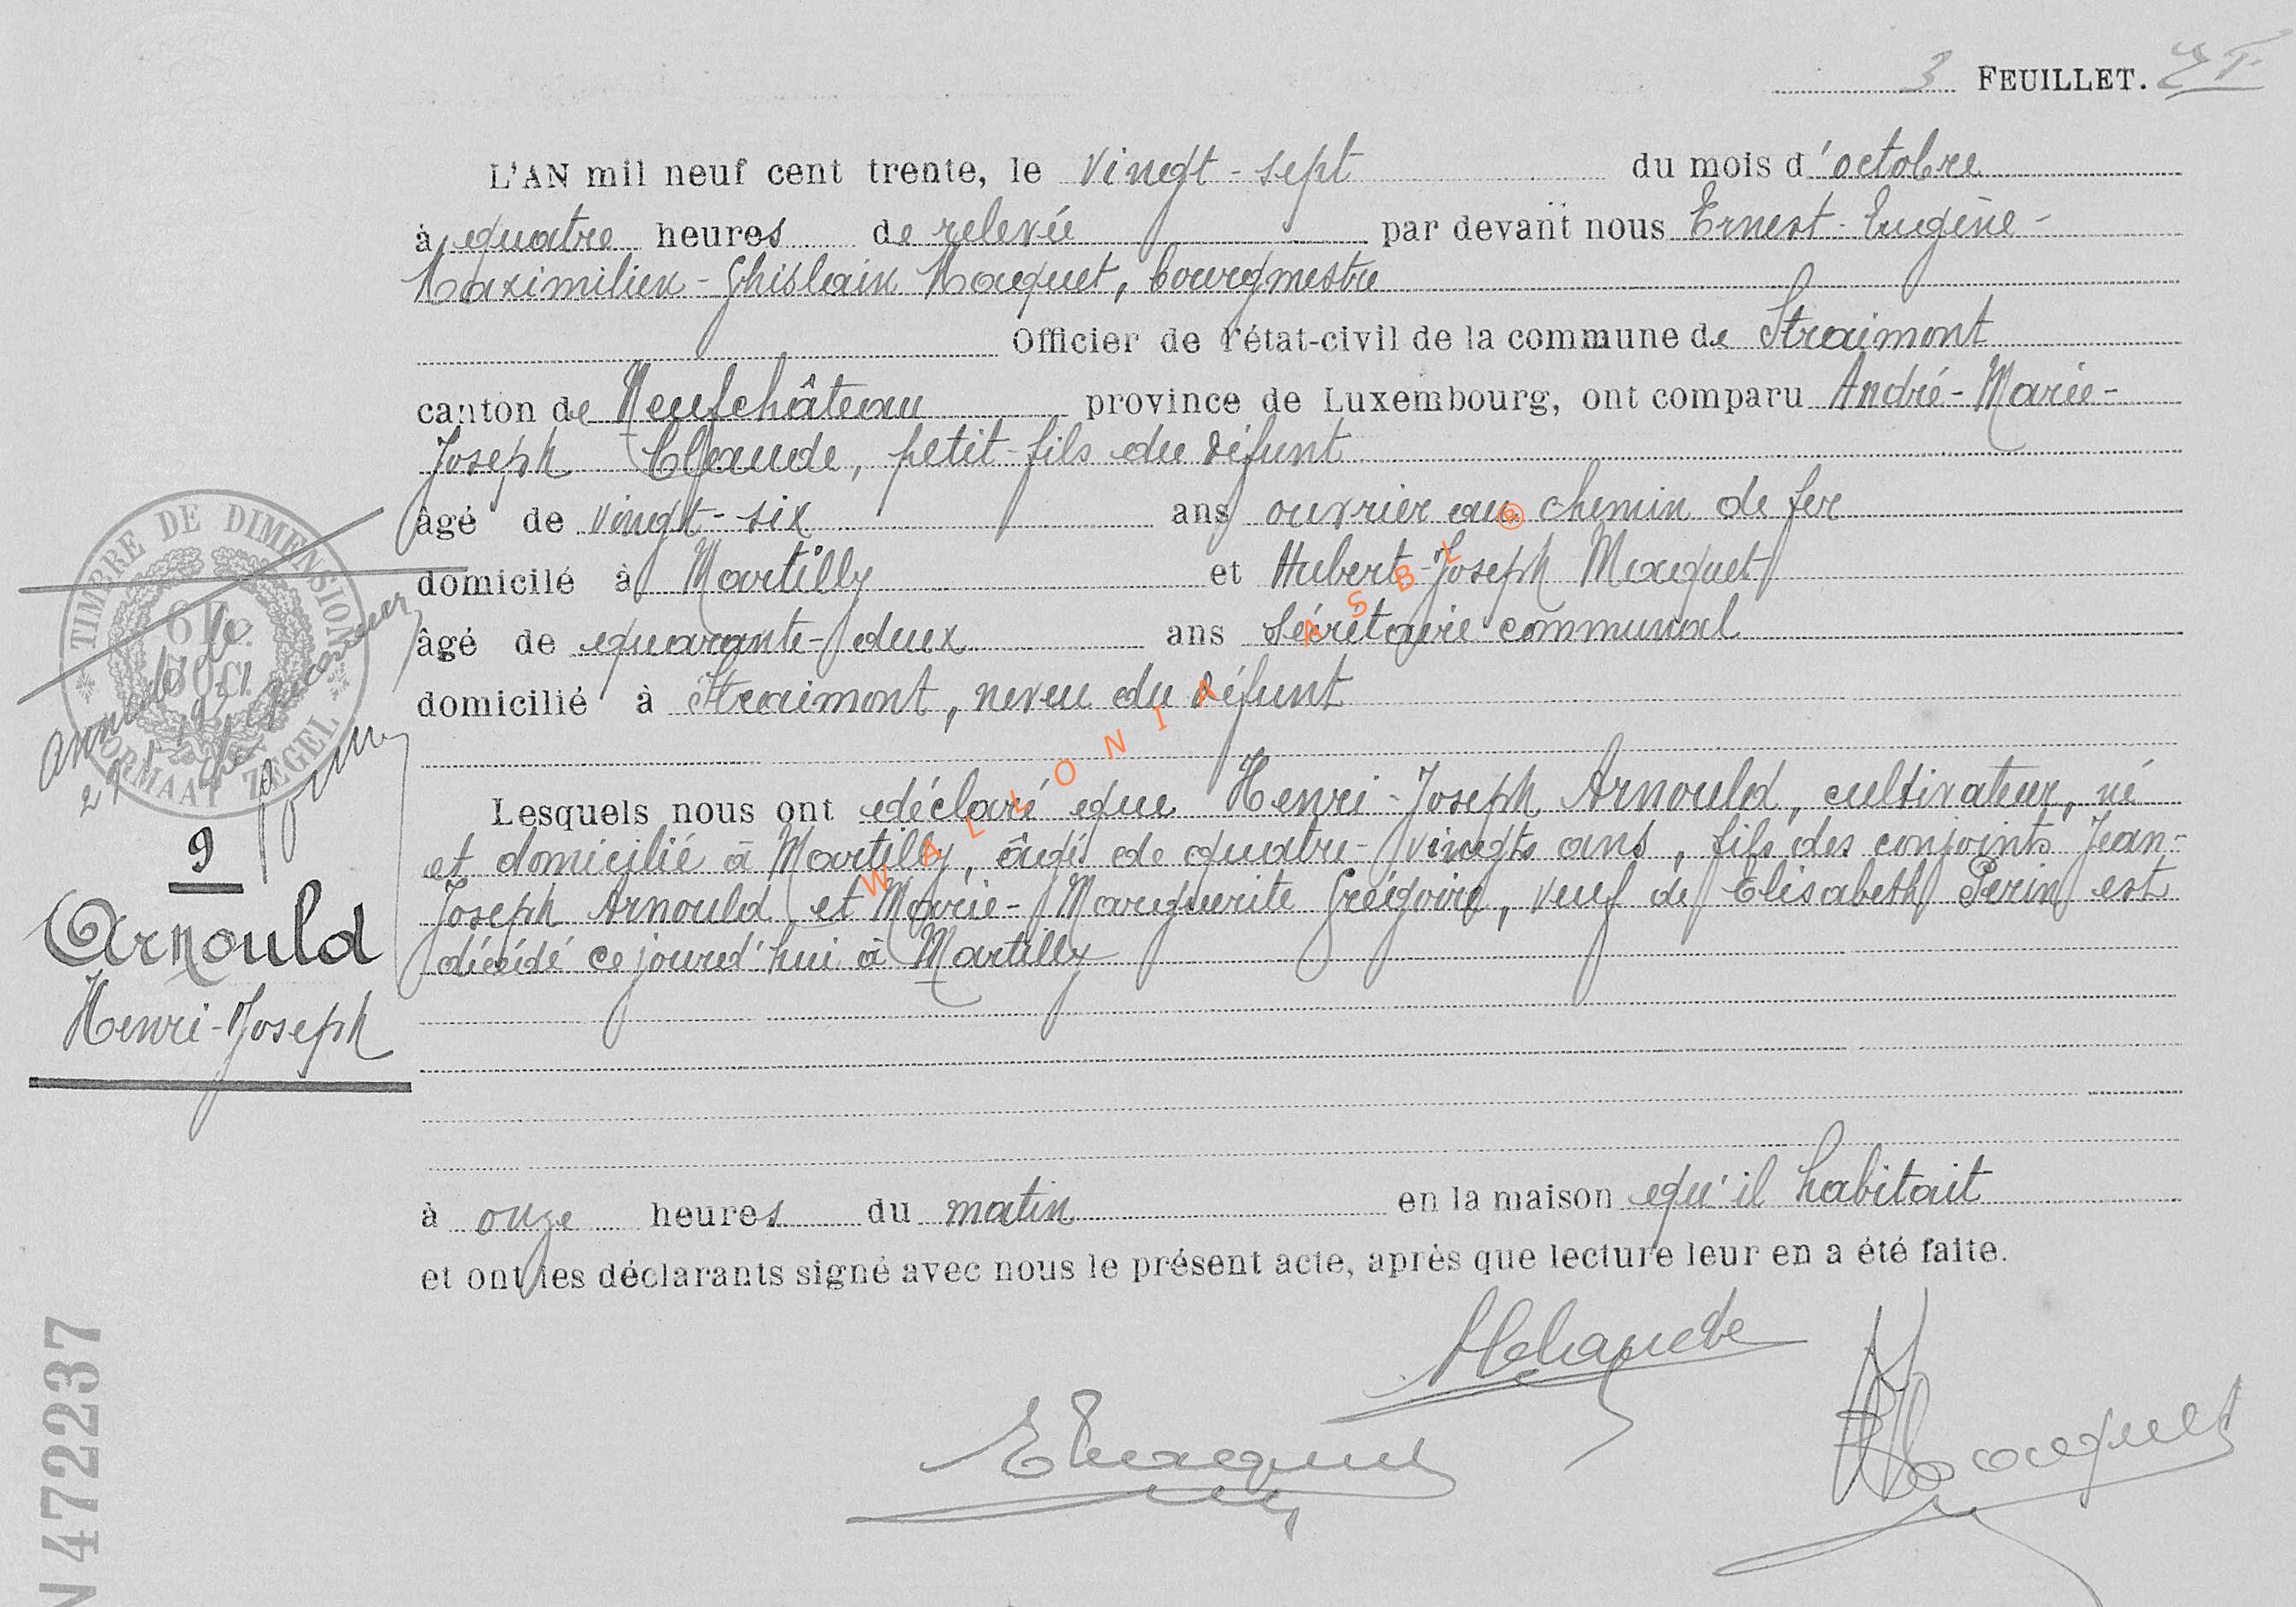 3 FEUILLET.
L'AN mil neuf cent trente, le vingt-sept du mois d'octobre
à quatre heures de relevée par devant nous Ernest-Eugène-
Maximilien-Ghislain Maquet, bourgmestre
Officier de l'état-civil de la commune de Straimont
canton de Neufchâteau province de Luxembourg, ont comparu André-Marie-
Joseph Claude, petit-fils du défunt
âgé de vingt-six ans ouvrier au chemin de fer
domicilé à Martilly et Hubert-Joseph Maquet
âgé de quarante-deux ans Sécrétaire communal
domicilié à Straimont, neveu du défunt
Lesquels nous ont déclaré que Henri-Joseph Arnould, cultivateur, né
et domicilié à Martilly, âgé de quatre-vingts ans, fils des conjoints Jean-
Joseph Arnould et Marie-Marguerite Grégoire, veuf de Elisabeth Perin est
décédé ce jourd'hui à Martilly
à onze heures du matin en la maison qu'il habitait
et ont les déclarants signé avec nous le présent acte, après que lecture leur en a été faite.
AClaude
EMaquet
HMaquet
TIMBRE DE DIMENSION
FORMAAT ZEGEL
9
Arnould
Henri-Joseph
N 472237
WALLONIA ASBL @